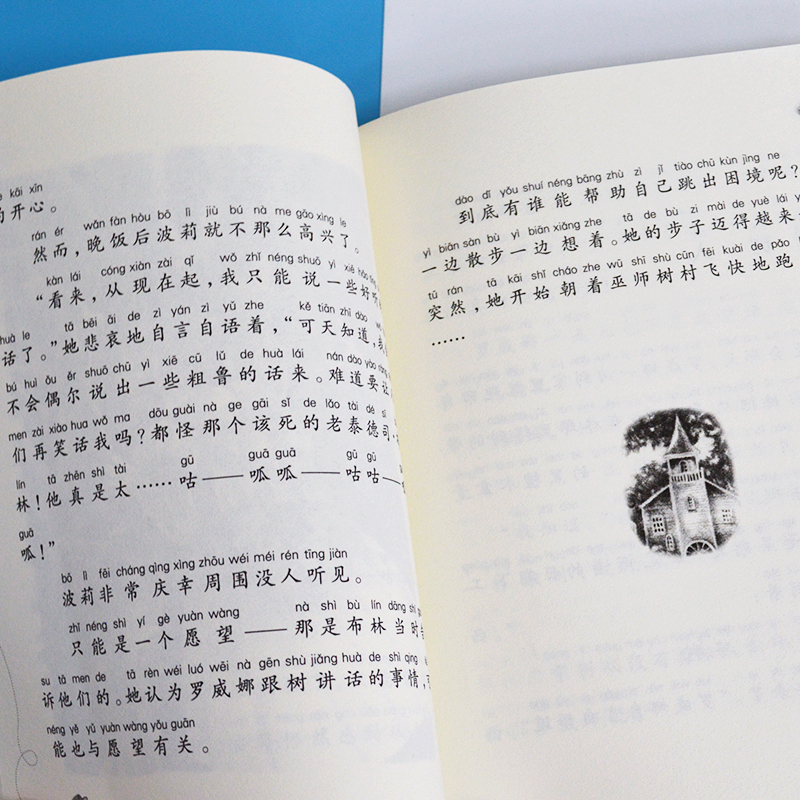 kāi xīn
的开心。
rán ér wǎn fàn hòu bō lì jiù bú nà me gāo xìng le
然而，晚饭后波莉就不那么高兴了。
kàn lái cóng xiàn zài qǐ wǒ zhǐ néng shuō yì xiē hǎo
“看来，从现在起，我只能说一些好听
huà le tā bēi āi de zì yán zì yǔ zhe kě tiān zhī dào
话了。”她悲哀地自言自语着，“可天知道，我
bú huì ǒu ěr shuō chū yì xiē cū lǔ de huà lái nán dào yào
不会偶尔说出一些粗鲁的话来。难道要让
men zài xiào hua wǒ ma dōu guài nà ge gāi sǐ de lǎo tài dé sī
们再笑话我吗？都怪那个该死的老泰德司·
lín tā zhēn shì tài gū guā guā gū gū
林！他真是太……咕——呱呱——咕咕——
guā
呱！”
bō lì fēi cháng qìng xìng zhōu wéi méi rén tīng jiàn
波莉非常庆幸周围没人听见。
zhǐ néng shì yí gè yuàn wàng nà shì bù lín dāng shí
只能是一个愿望——那是布林当时
su tā men de tā rèn wéi luó wēi nà gēn shù jiǎng huà de shì qing
诉他们的。她认为罗威娜跟树讲话的事情，
néng yě yǔ yuàn wàng yǒu guān
能也与愿望有关。
dào dǐ yǒu shuí néng bāng zhù zì jǐ tiào chū kùn jìng ne
到底有谁能帮助自己跳出困境呢？
yì biān sàn bù yì biān xiǎng zhe tā de bù zi mài de yuè lái
一边散步一边想着。她的步子迈得越来
tū rán tā kāi shǐ cháo zhe wū shī shù cūn fēi kuài de pǎo
突然，她开始朝着巫师树村飞快地跑
……